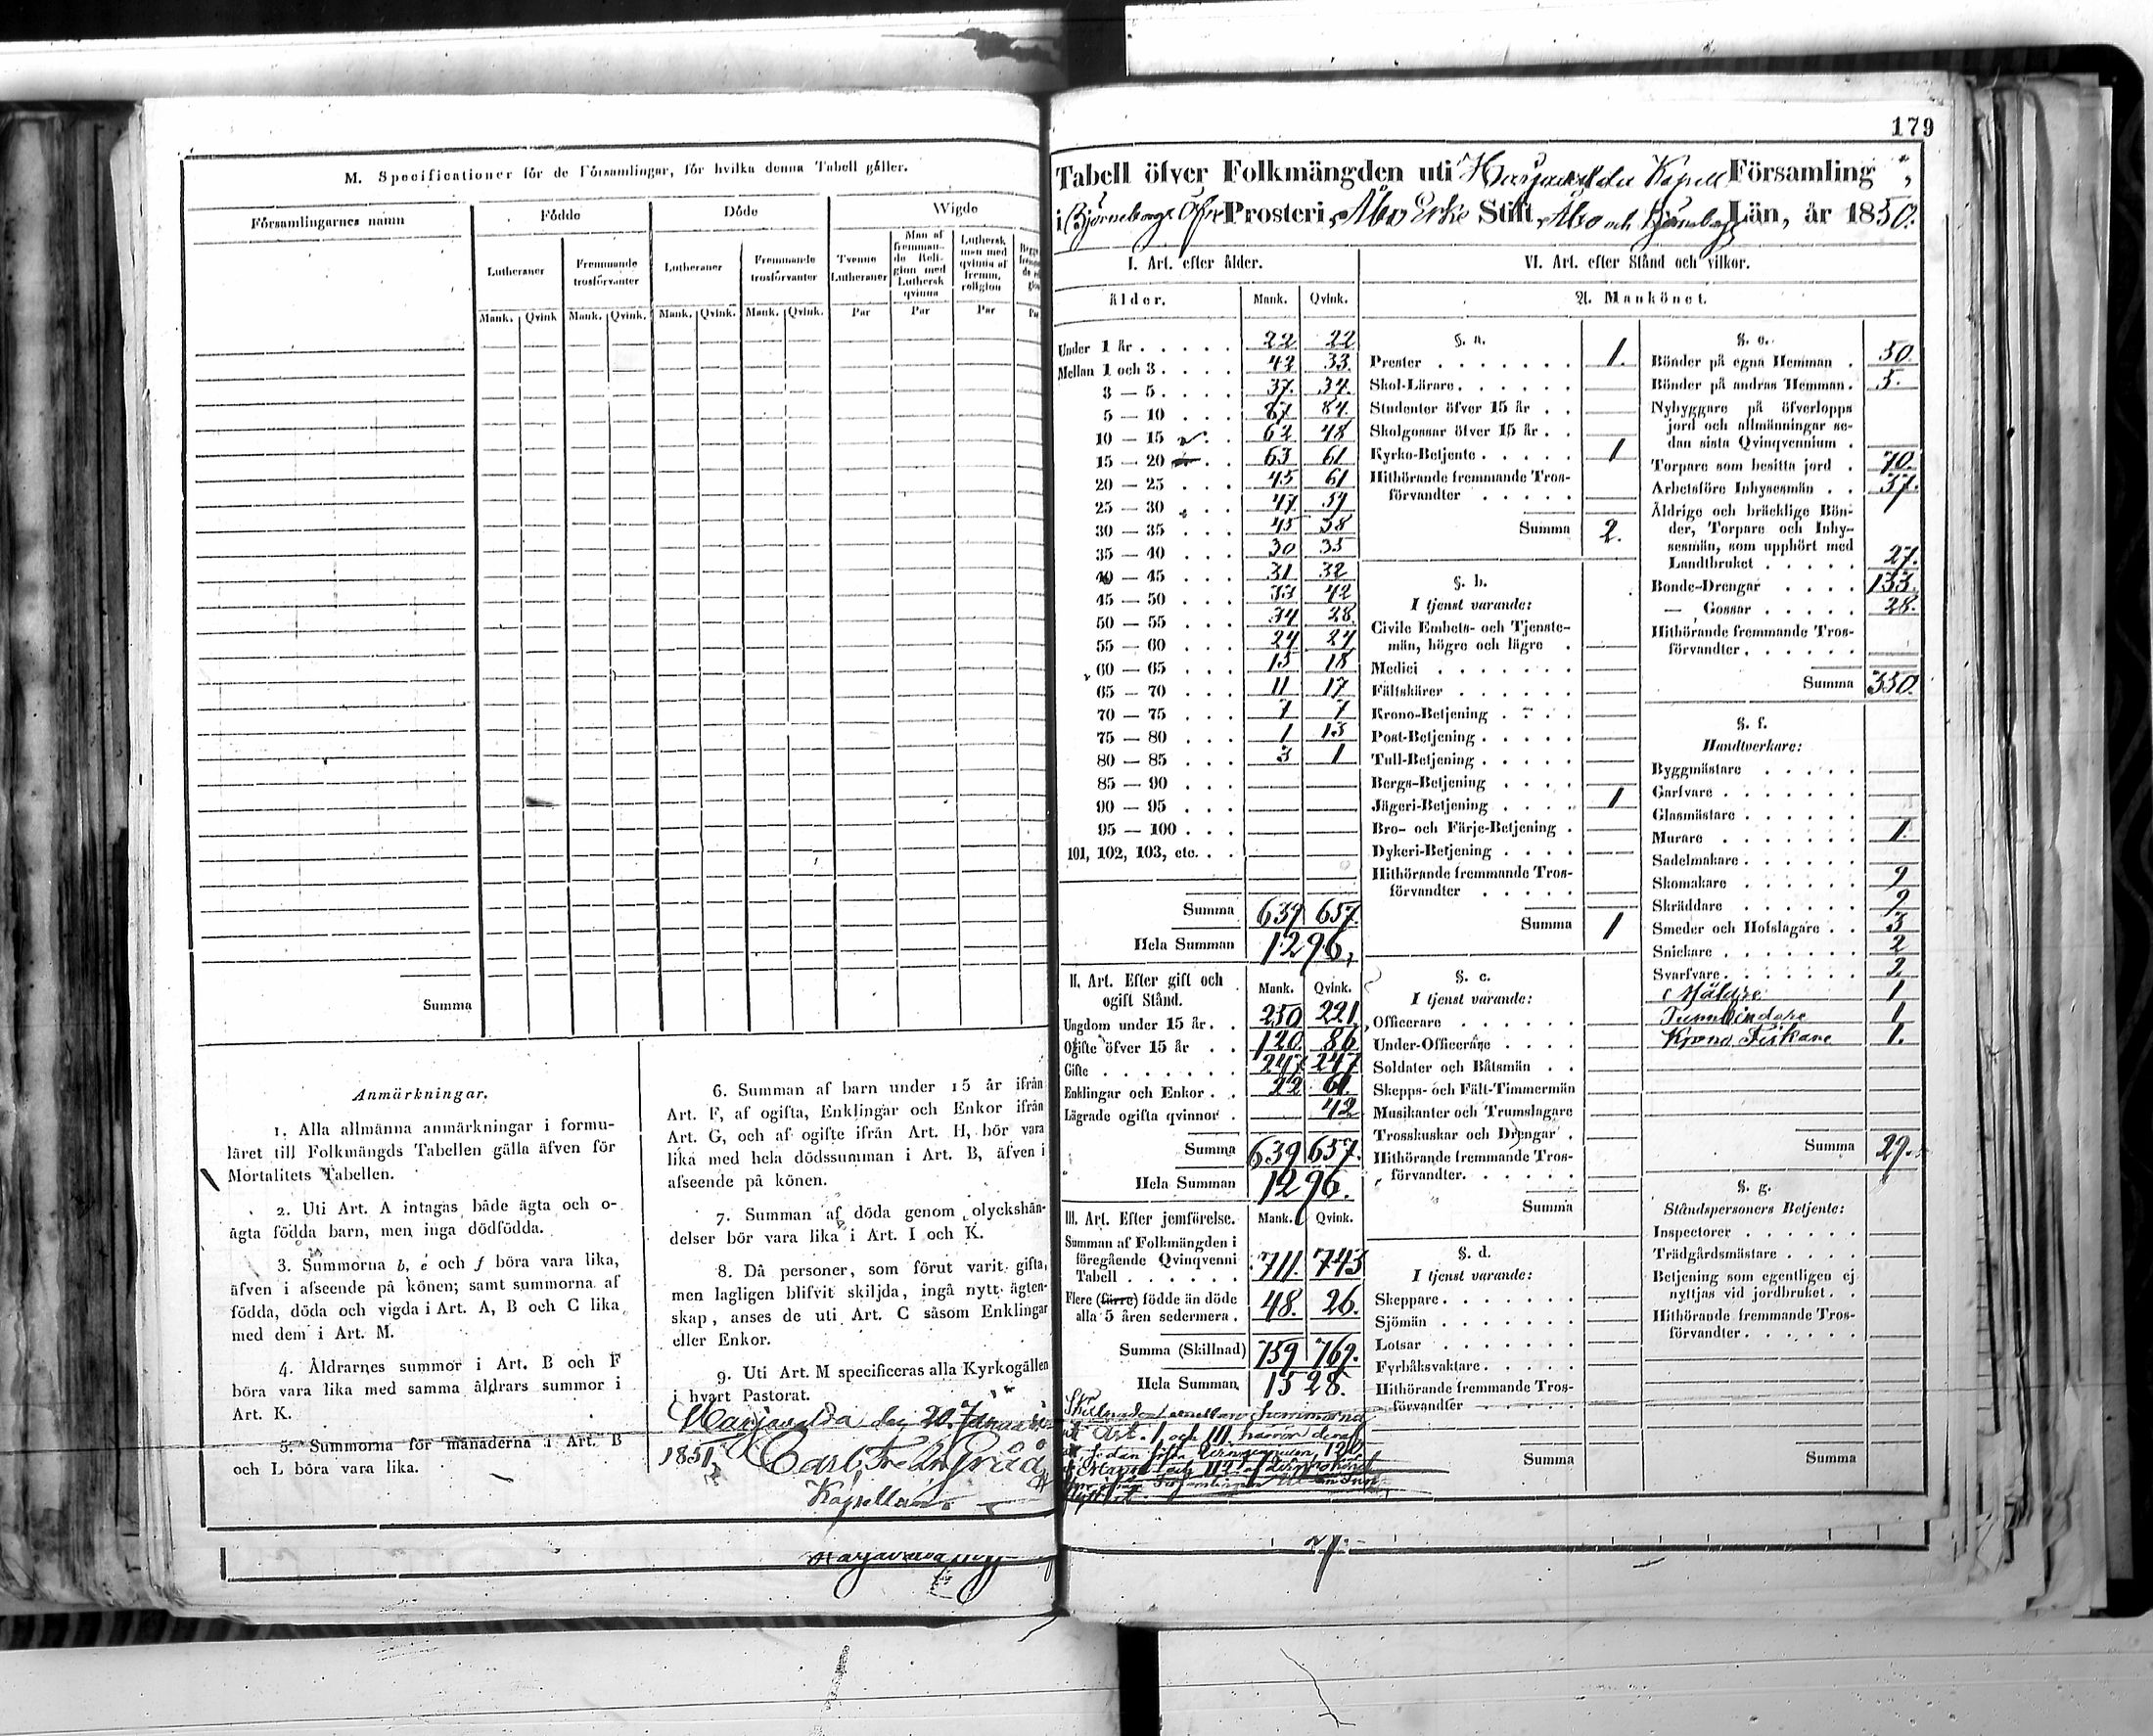 M. Specificationer för de Församlingar, för hvilka denna Tabell gäller.
Församlingarnes namn
Födde
Döde
Wigde
Lutheraner
Fremmande trosförvanter
Lutheraner
Fremmande trosförvanter
Tvenne Lutheraner
Man af fremmande Religion med Luthersk qvinna
Luthersk man med qvinna af fremm. religion
Mank. Qvink Mank. Qvink. Mank. Qvink. Mank. Qvink. Par Par Par
Summa
Anmärkningar.
1. Alla allmänna anmärkningar i formu-
läret till Folkmängds Tabellen gälla äfven för
Mortalitets Tabellen.
2. Uti Art. A intagas både ägta och o-
ägta födda barn, men inga dödfödda.
3. Summorna b, e och f böra vara lika,
äfven i afseende på könen; samt summorna af
födda, döda och vigda i Art. A, B och C lika
med dem i Art. M.
4. Åldrarnes summor i Art. B och F
böra vara lika med samma åldrars summor i
Art. K.
5. Summorna för månaderna i Art. B
och L böra vara lika.
6. Summan af barn under 15 år ifrån
Art. F, af ogifta, Enklingar och Enkor ifrån
Art. G, och af ogifte ifrån Art. H, bör vara
lika med hela dödssumman i Art. B, äfven i
afseende på könen.
7. Summan af döda genom olyckshän-
delser bör vara lika i Art. I och K.
8. Då personer, som förut varit gifta,
men lagligen blifvit skiljda, ingå nytt ägten-
skap, anses de uti Art. C såsom Enklingar
eller Enkor.
9. Uti Art. M specificeras alla Kyrkogällen
i hvart Pastorat.
Harjavalda den 20 Januarii
1851. Carl Fredr Gråå
Kapellan
179
Tabell öfver Folkmängden uti Harjavalda Kapell Församling,
i Björneborgs Öfre Prosteri, Åbo Erke Stift, Åbo och Björneborgs Län, år 1850.
I. Art. efter ålder.
Ålder. Mank. Qvink.
Under 1 år 22 22
Mellan 1 och 3 42 33
3 — 5 37 34
5 — 10 87 84
10 — 15 62 48
15 — 20 63 61
20 — 25 45 61
25 — 30 47 59
30 — 35 45 38
35 — 40 30 35
40 — 45 31 32
45 — 50 33 42
50 — 55 34 28
55 — 60 24 24
60 — 65 15 18
65 — 70 11 17
70 — 75 7 7
75 — 80 1 13
80 — 85 3 1
85 — 90
90 — 95
95 — 100
101, 102, 103, etc.
Summa 639 657.
Hela Summan 1296,
II. Art. Efter gift och ogift Stånd. Mank. Qvink.
Ungdom under 15 år 250 221
Ogifte öfver 15 år 120 86
Gifte 247 247
Enklingar och Enkor 22 61
Lägrade ogifta qvinnor 42
Summa 639 657.
Hela Summan 1296.
III. Art. Efter jemförelse. Mank. Qvink.
Summan af Folkmängden i
föregående Qvinqvenni
Tabell 711. 743
Flere (färre) födde än döde
alla 5 åren sedermera 48. 26.
Summa (Skillnad) 759 769.
Hela Summan 1528.
VI. Art. efter Stånd och vilkor.
A. Mankönet.
§. a.
Prester 1.
Skol-Lärare
Studenter öfver 15 år
Skolgossar öfver 15 år
Kyrko-Betjente 1
Hithörande fremmande Tros-
förvandter
Summa 2.
§. b.
I tjenst varande:
Civile Embets- och Tjenste-
män, högre och lägre
Medici
Fältskärer
Krono-Betjening
Post-Betjening
Tull-Betjening
Bergs-Betjening
Jägeri-Betjening 1
Bro- och Färje-Betjening
Dykeri-Betjening
Hithörande fremmande Tros-
förvandter
Summa 1
§. c.
I tjenst varande:
Officerare
Under-Officerare
Soldater och Båtsmän
Skepps- och Fält-Timmermän
Musikanter och Trumslagare
Trosskuskar och Drengar
Hithörande fremmande Tros-
förvandter.
Summa
§. d.
I tjenst varande:
Skeppare
Sjömän
Lotsar
Fyrbåksvaktare
Hithörande fremmande Tros-
förvandter
Summa
§. e.
Bönder på egna Hemman 50.
Bönder på andras Hemman 5.
Nybyggare på öfverlopps
jord och allmänningar se-
dan sista Qvinqvennium
Torpare som besitta jord 70.
Arbetsföre Inhysesmän 37.
Äldrige och bräcklige Bön-
der, Torpare och Inhy-
sesmän, som upphört med
Landtbruket 27.
Bonde-Drengar 133.
— Gossar 28.
Hithörande fremmande Tros-
förvandter
Summa 350.
§. f.
Handtverkare:
Byggmästare
Garfvare
Glasmästare
Murare 1.
Sadelmakare
Skomakare 9
Skräddare 9
Smeder och Hofslagare 3
Snickare 2
Svarfvare 2
Målare 1
Tunnbindare 1
Krono Fiskare 1.
Summa 29.
§. g.
Ståndspersoners Betjente:
Inspectorer
Trädgårdsmästare
Betjening som egentligen ej
nyttjas vid jordbruket
Hithörande fremmande Tros-
förvandter
Summa